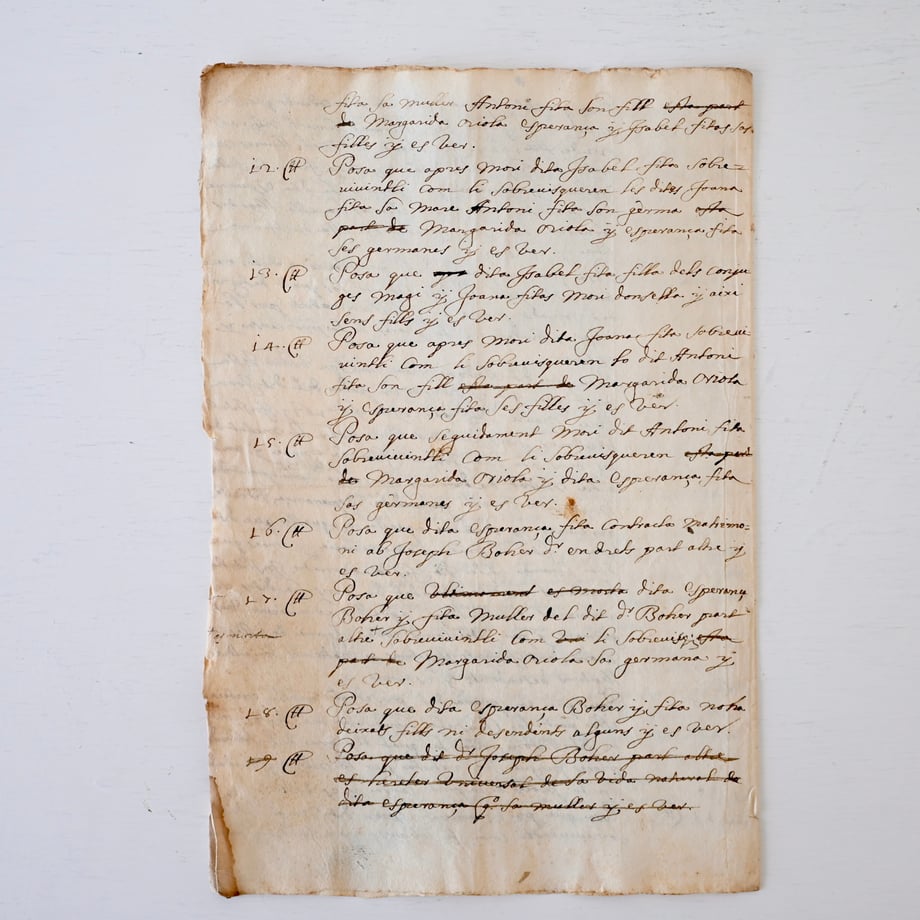 fita sa muller Antoni fita son fill esta part
de Margarida Oriola esperança y Isabel fitas sas
filles y es ver.
12. Posa que apres mori dita Isabel fita sobre=
vivintli com li sobrevisqueren les dites Joana
fita sa mare Antoni fita son germa esta
part de Margarida Oriola y esperança fita
ses germanes y es ver.
13. Posa que dita Isabel fita filla dels conju
ges Magi y Joana fitas mori donsella y axi
sens fills y es ver.
14. Posa que apres mori dita Joana fita sobrevi
vintli com li sobrevisqueren lo dit Antoni
fita son fill esta part de Margarida Oriola
y esperança fita ses filles y es ver.
15. Posa que seguidament mori dit Antoni fita
sobrevivintli com li sobrevisqueren esta part
de Margarida Oriola y dita esperança fita
sas germanes y es ver.
16. Posa que dita esperança fita contracta matrimo=
ni ab Joseph Boher dr. en drets part altre y
es ver.
17. Posa que ultimament es morta dita esperança
Boher y fita muller del dit dr. Boher part
es morta
altre + sobrevivintli com li sobrevisq esta
part de Margarida Oriola sa germana y
es ver.
18. Posa que dita esperança Boher y fita no ha
deixat fills ni desendents alguns y es ver.
19 Posa que dit dr. Joseph Boher part altre
es hereter universal de sa vida natural de
dita esperança q°. sa muller y es ver.